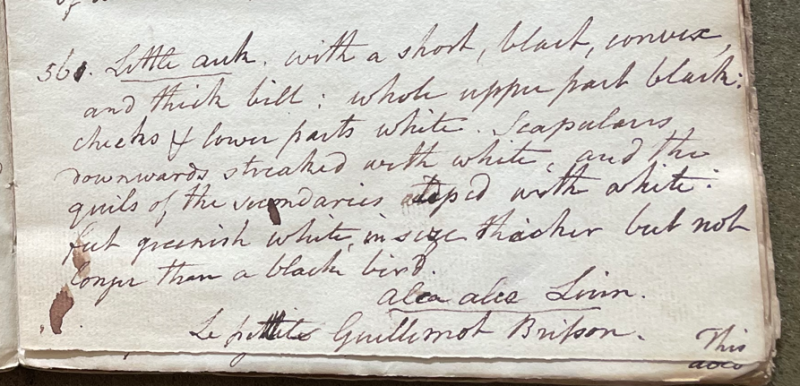 561. Little auk. with a short, black, convex,
and thick bill: whole upper part black:
cheeks & lower parts white. Scapulars
downwards streaked with white, and the
quils of the secondaries tiped with white:
feet greenish white, in size thicker but not
longer than a black bird.
Alca alce Linn.
Le petite Guillemot Brisson.
This